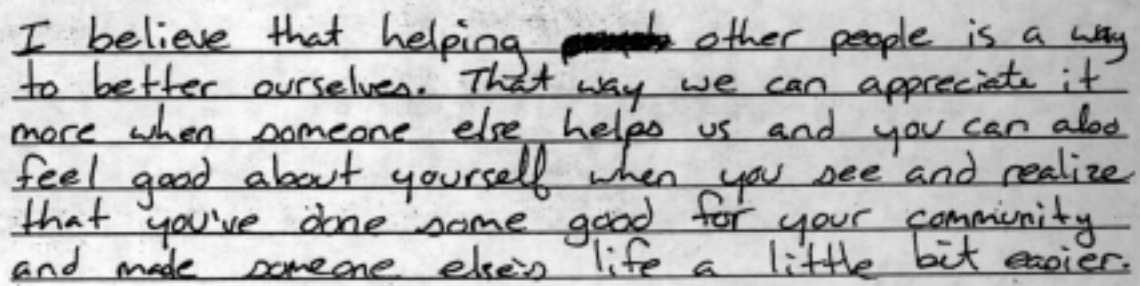 I believe that helping other people is a way
to better ourselves. That way we can appreciate it
more when someone else helps us and you can also
feel good about yourself when you see and realize
that you've done some good for your community
and made someone else's life a little bit easier.